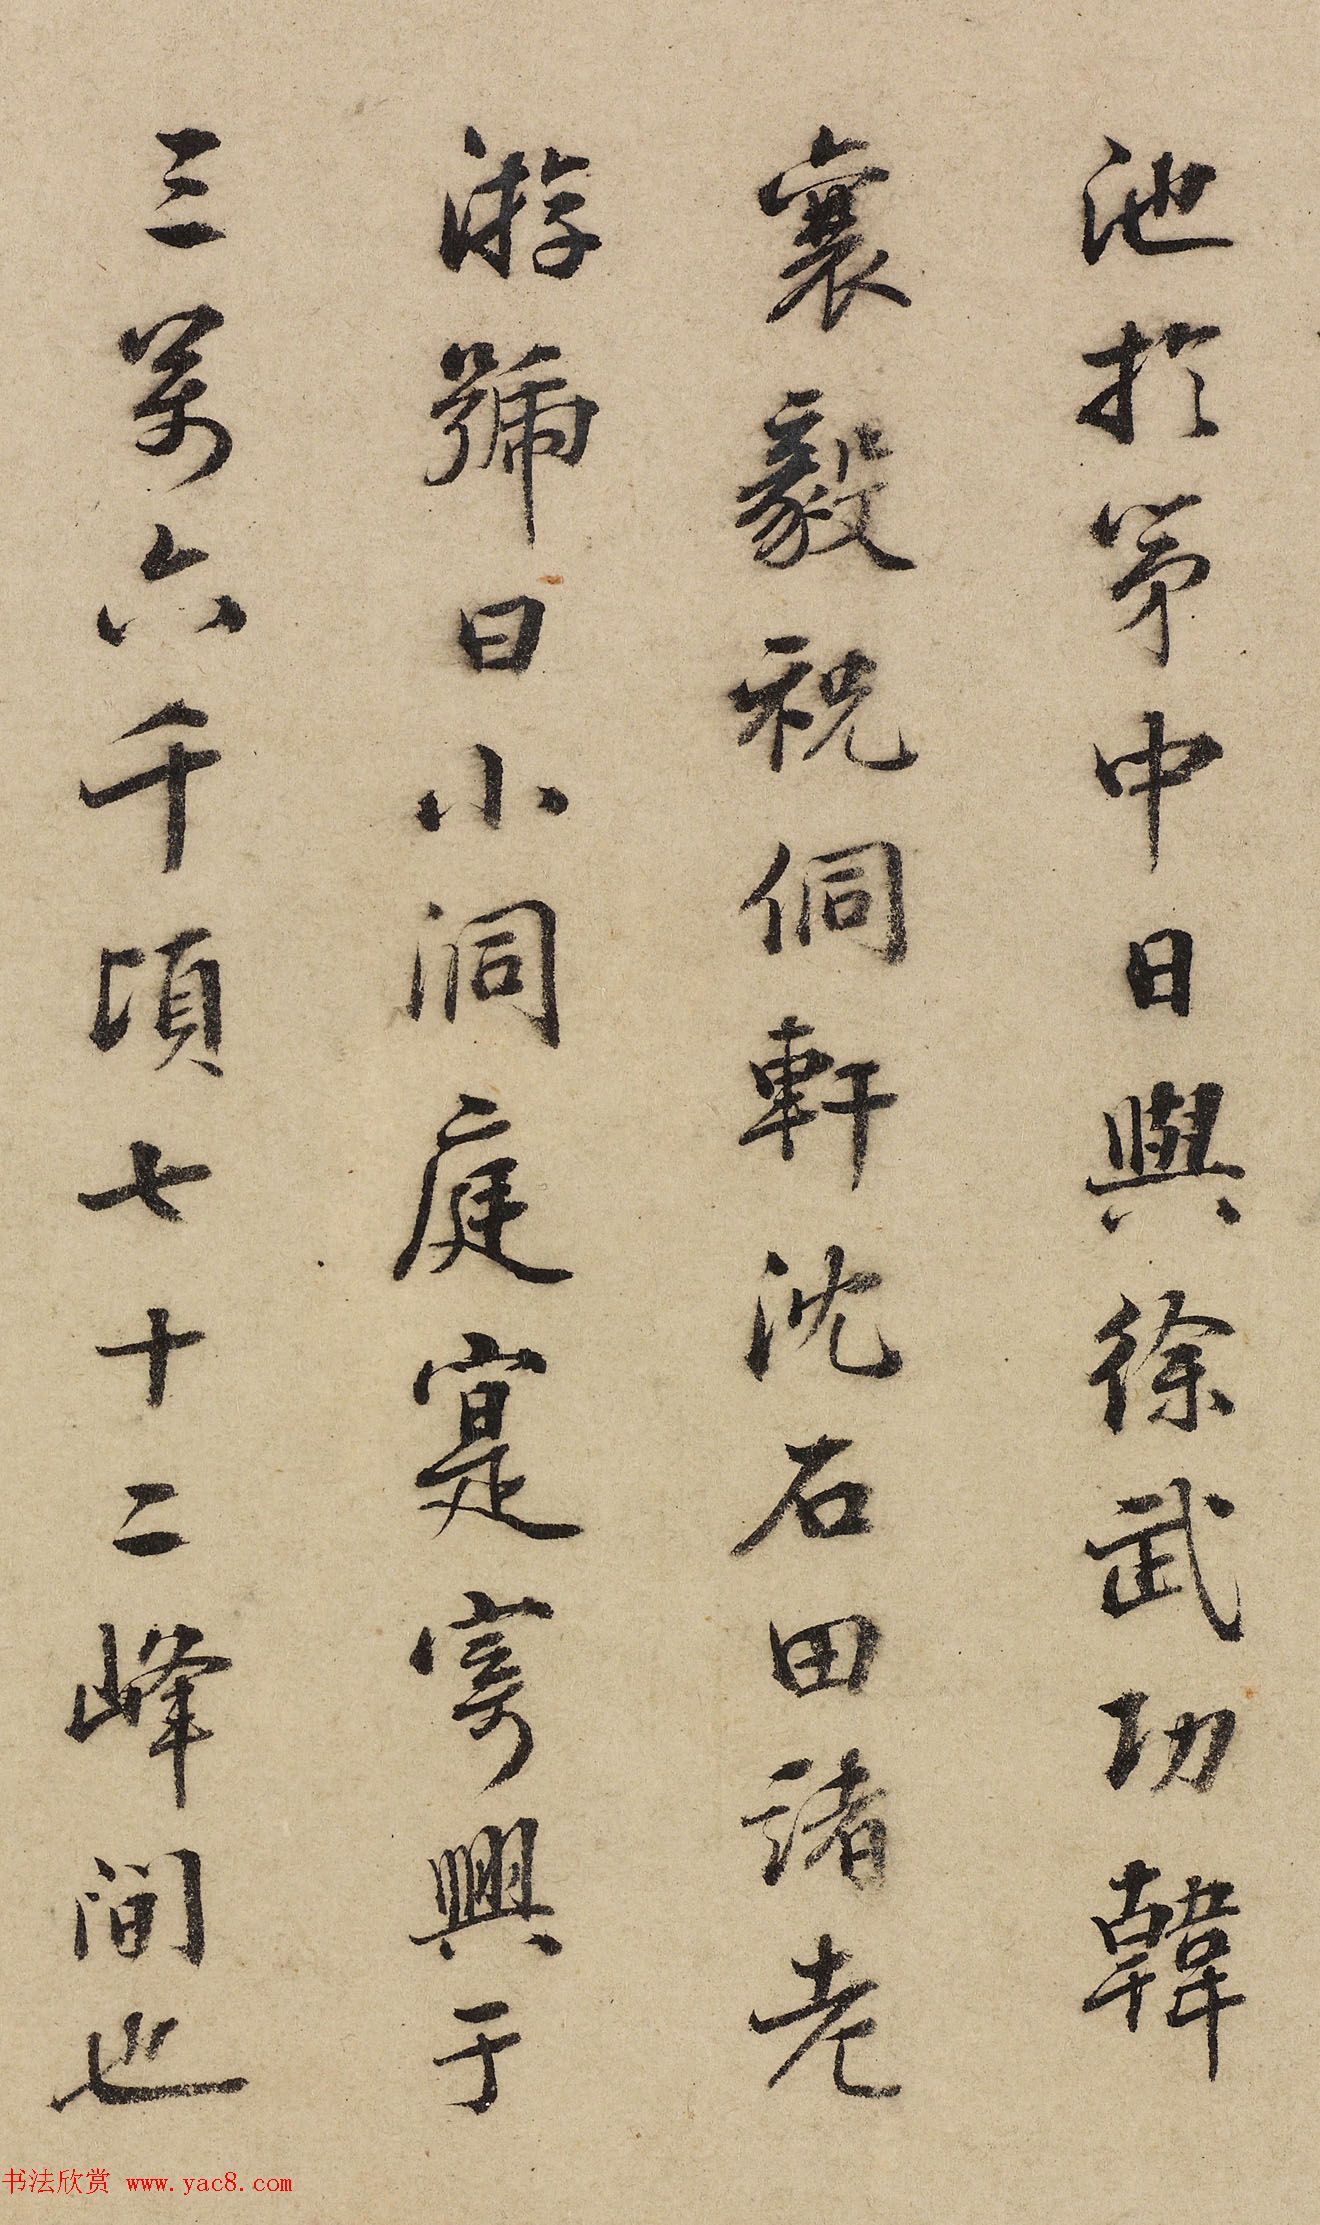 池於第中日與徐武功韓
襄毅祝侗軒沈石田諸老
游號曰小洞庭寔寄興于
三萬六千頃七十二峰間也
书法欣赏 www.yac8.com